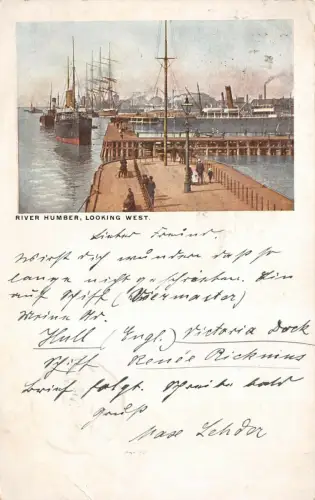 RIVER HUMBER, LOOKING WEST.
Lieber Freund.
Wirst dich wundern daß so
lange nicht geschrieben. Bin
auf Schiff (Viermaster)
Meine Adr.
Hull (Engl.) Victoria Dock
Schiff Renée Rickmers
Brief folgt. Schreibe bald
Gruß
Max